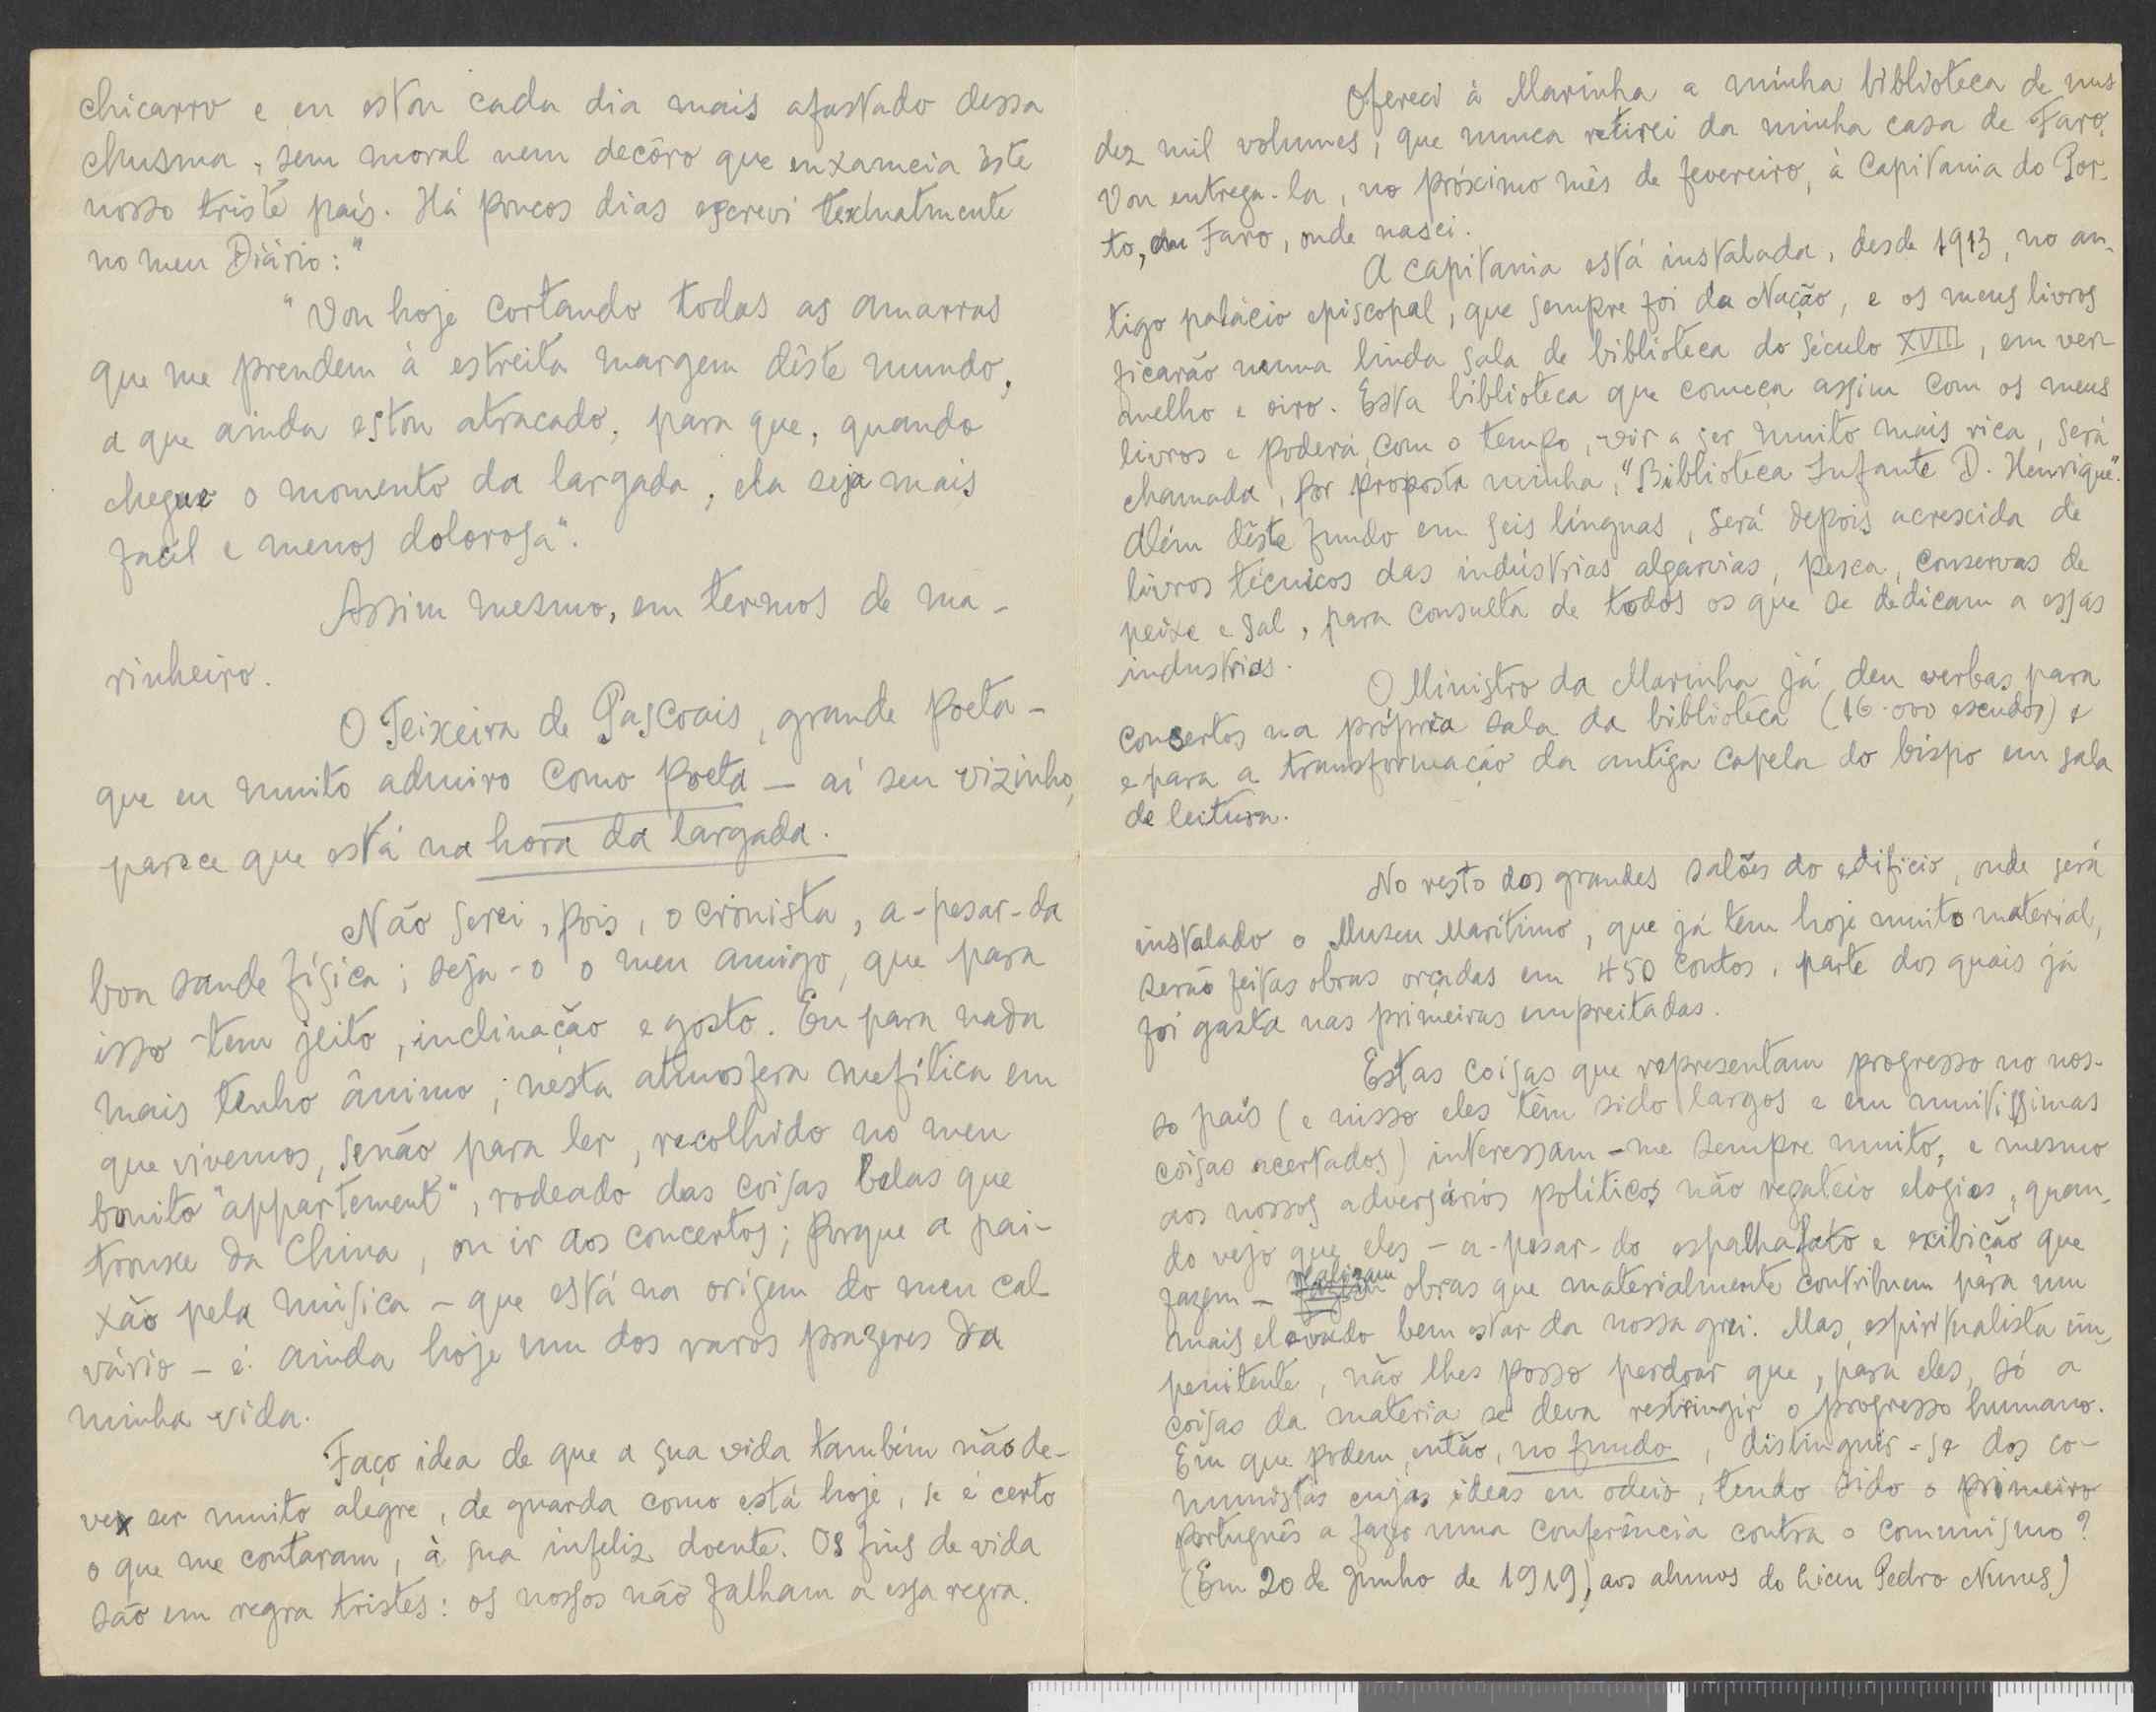 chicarro e eu estou cada dia mais afastado dessa
chusma, sem moral nem decôro que enxameia êste
nosso triste país. Há poucos dias escrevi textualmente
no meu Diário:"
"Vou hoje cortando todas as amarras
que me prendem à estreita margem dêste mundo,
a que ainda estou atracado, para que, quando
chegue o momento da largada, ela seja mais
facil e menos dolorosa".
Assim mesmo, em termos de ma-
rinheiro.
O Teixeira de Pascoais, grande poeta -
que eu muito admiro como poeta - aí seu vizinho,
parece que está na hora da largada.
Não serei, pois, o cronista, a-pesar-da
boa saude física; seja-o o meu amigo, que para
isso tem jeito, inclinação e gosto. Eu para nada
mais tenho ânimo; nesta atmosfera mefítica em
que vivemos, senão para ler, recolhido no meu
bonito "appartement", rodeado das coisas belas que
trouxe da China, ou ir aos concertos; porque a pai-
xão pela música - que está na origem do meu cal-
vário - é ainda hoje um dos raros prazeres da
minha vida.
Faço idea de que a sua vida também não de-
ve ser muito alegre, de guarda como está hoje, se é certo
o que me contaram, à sua infeliz doente. Os fins de vida
são em regra tristes: os nossos não falham a essa regra.
Ofereci à Marinha a minha biblioteca de uns
dez mil volumes, que nunca retirei da minha casa de Faro.
Vou entrega-la, no próximo mês de fevereiro, à Capitania do Por-
to, em Faro, onde nasci.
A capitania está instalada, desde 1913, no an-
tigo palácio episcopal, que sempre foi da Nação, e os meus livros
ficarão numa linda sala de biblioteca do século XVIII, em ver-
melho e oiro. Esta biblioteca que começa assim com os meus
livros e poderá, com o tempo, vir a ser muito mais rica, será
chamada, por proposta minha, "Biblioteca Infante D. Henrique".
Além dêste fundo em seis línguas, será depois acrescida de
livros técnicos das indústrias algarvias, pesca, conservas de
peixe e sal, para consulta de todos os que se dedicam a essas
industrias.
O Ministro da Marinha já deu verbas para
consertos na própria sala da biblioteca (16.000 escudos) e
e para a transformação da antiga capela do bispo em sala
de leitura.
No resto dos grandes salões do edificio, onde será
instalado o Museu Marítimo, que já tem hoje muito material,
serão feitas obras orçadas em 450 contos, parte dos quais já
foi gasta nas primeiras empreitadas.
Estas coisas que representam progresso no nos-
so país (e nisso eles têm sido largos e em muitissimas
coisas acertados) interessam-me sempre muito, e mesmo
aos nossos adversários políticos não regateio elogios, quan-
do vejo que eles - a-pesar-do espalhafato e exibição que
fazem - realizam obras que materialmente contribuem para um
mais elevado bem estar da nossa grei. Mas, espiritualista im-
penitente, não lhes posso perdoar que, para eles, só a
coisas da materia se deva restringir o progresso humano.
Em que podem, então, no fundo, distinguir-se dos co-
munistas cujas ideas eu odeio, tendo sido o primeiro
português a fazer uma conferência contra o comunismo?
(Em 20 de Junho de 1919, aos alunos do Liceu Pedro Nunes)